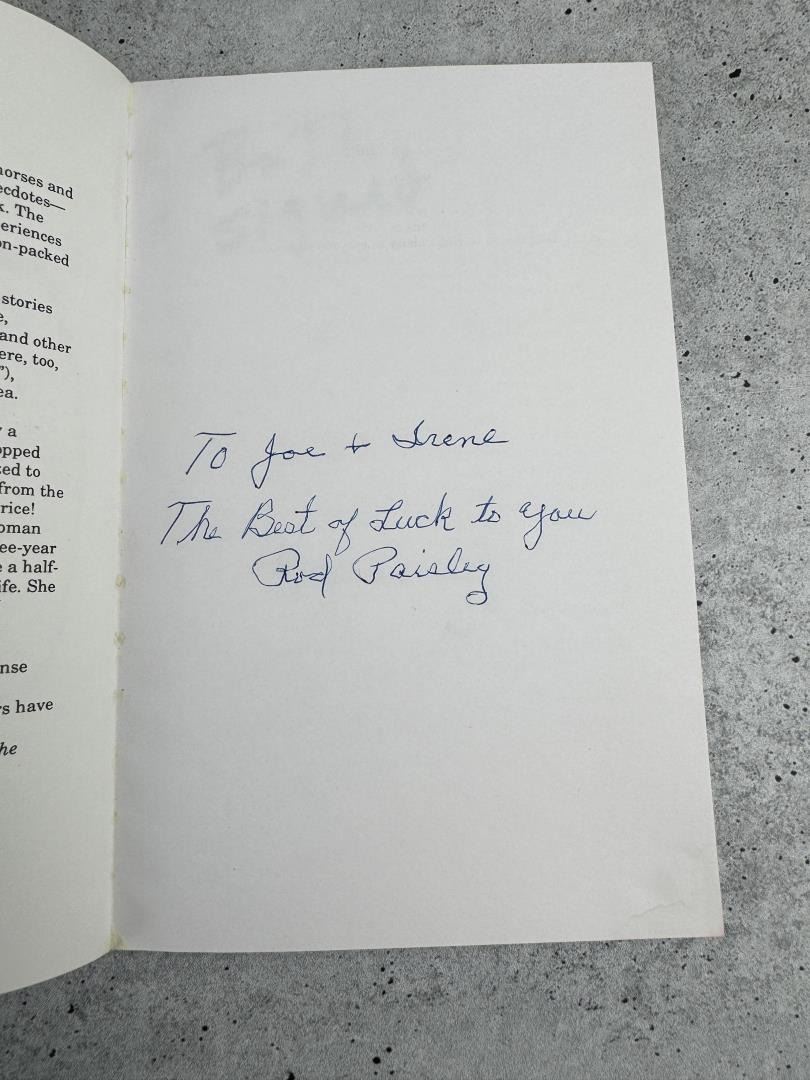 horses and
ecdotes—
k. The
periences
on-packed
stories
e,
and other
ere, too,
"),
ea.
y a
opped
ted to
from the
rice!
oman
ee-year
e a half-
ife. She
nse
rs have
he
To Joe + Irene
The Best of Luck to you
Rod Paisley